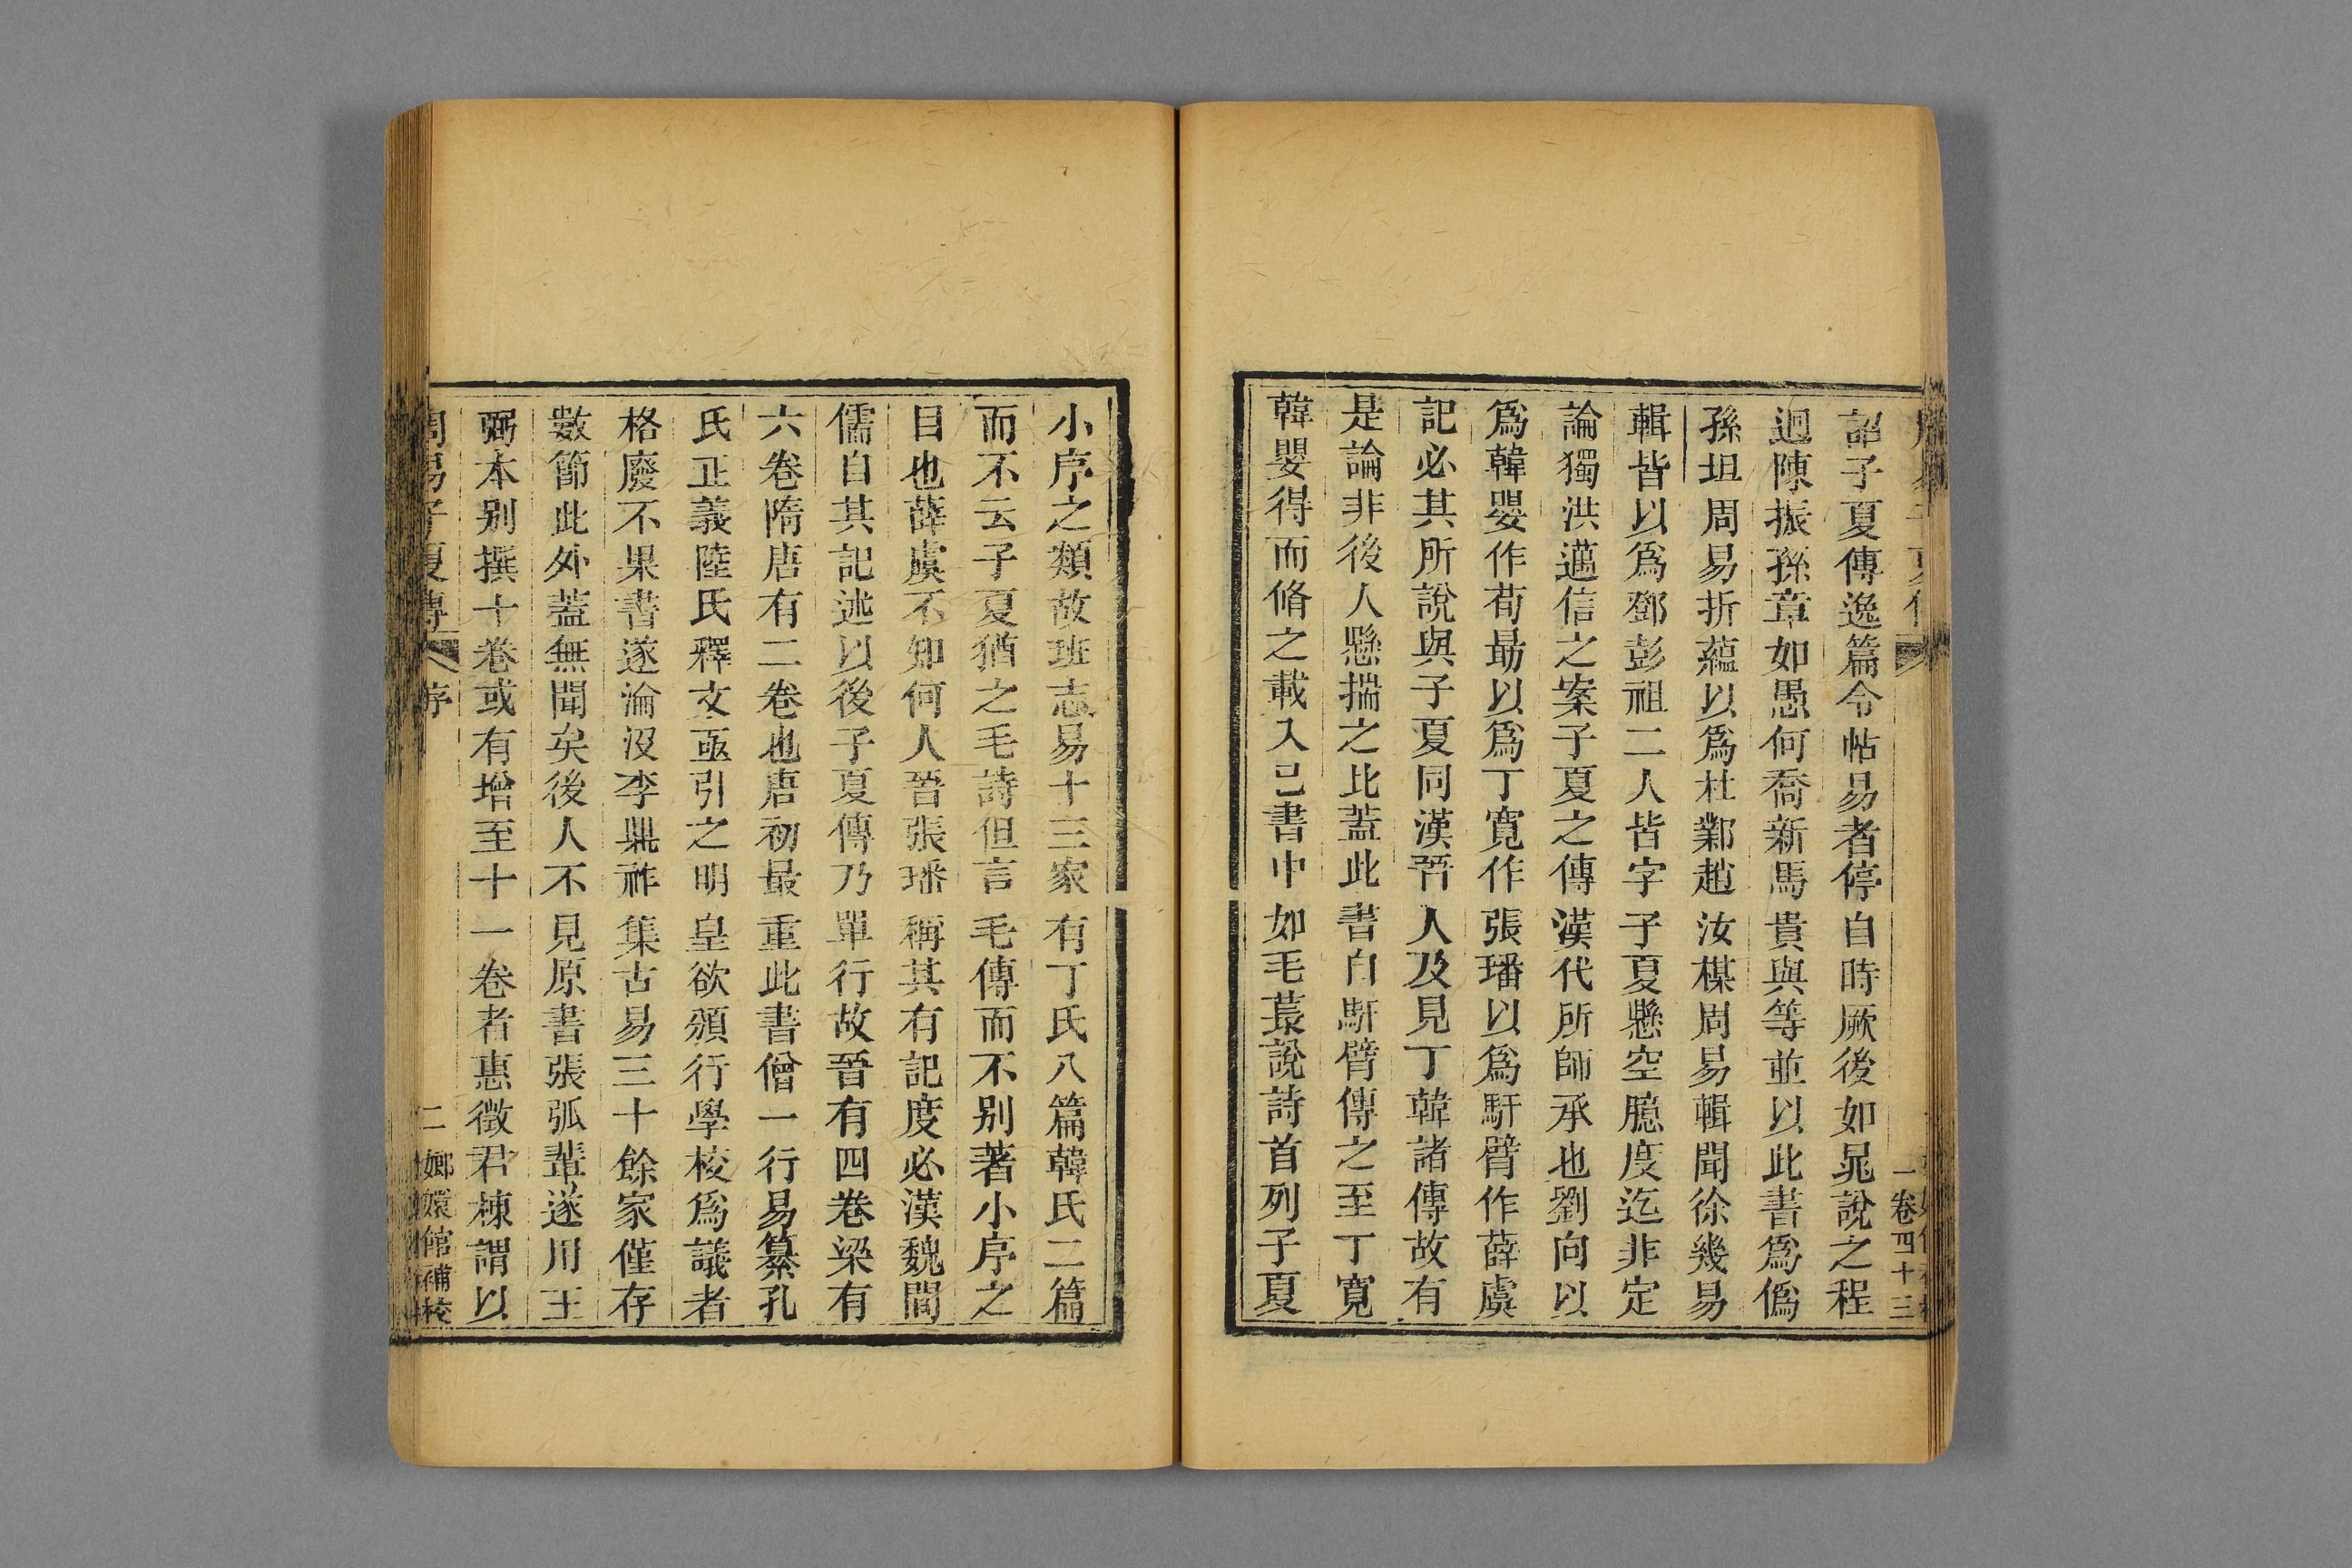 詔子夏傳逸篇令帖易者停自時厥後如晁說之程
迥陳振孫章如愚何喬新馬貴與等並以此書爲僞
孫坦周易折蘊以爲杜鄴趙汝楳周易輯聞徐幾易
輯皆以爲鄧彭祖二人皆字子夏懸空臆度迄非定
論獨洪邁信之案子夏之傳漢代所師承也劉向以
爲韓嬰作荀勗以爲丁寬作張璠以爲馯臂作薛虞
記必其所說與子夏同漢晉人及見丁韓諸傳故有
是論非後人懸揣之比蓋此書自馯臂傳之至丁寬
韓嬰得而脩之載入己書中如毛萇說詩首列子夏
一卷四十三
小序之類故班志易十三家有丁氏八篇韓氏二篇
而不云子夏猶之毛詩但言毛傳而不別著小序之
目也薛虞不知何人晉張璠稱其有記度必漢魏間
儒自其記述以後子夏傳乃單行故晉有四卷梁有
六卷隋唐有二卷也唐初最重此書僧一行易纂孔
氏正義陸氏釋文亟引之明皇欲頒行學校爲議者
格廢不果書遂淪沒李鼎祚集古易三十餘家僅存
數節此外蓋無聞矣後人不見原書張弧輩遂用王
弼本别撰十卷或有增至十一卷者惠徵君棟謂以
周易子夏傳 序 二 嫏嬛館補校